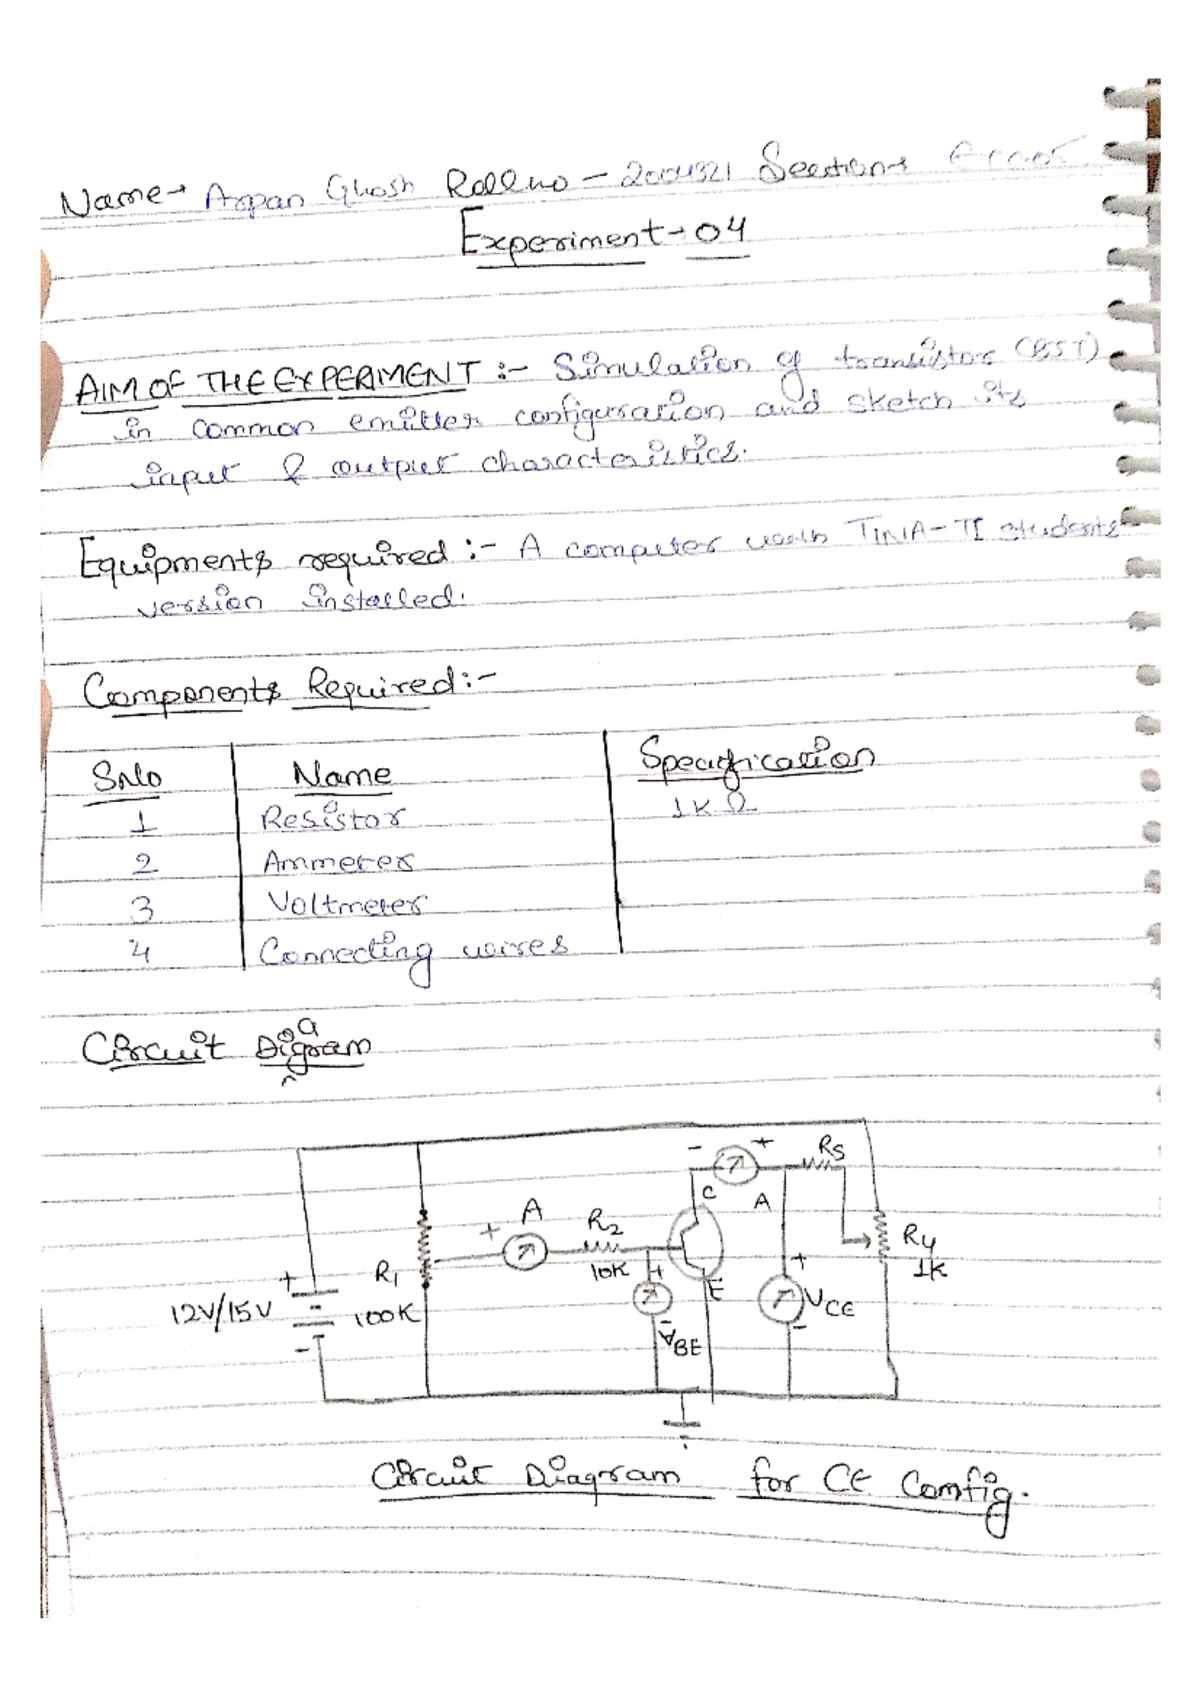 Name→ Arpan Ghosh Roll no - 2004321 Section→
Experiment - 04
AIM OF THE EXPERIMENT :- Simulation of transistor (BJT)
in common emitter configuration and sketch its
input & output characteristics.
Equipments required :- A computer with TINA-TI students
version installed.
Components Required:-
SrNo Name Specification
1 Resistor 1KΩ
2 Ammeter
3 Voltmeter
4 Connecting wires
Circuit Digram
a
^
- + RS
C A
+ A R2
R1 10K + E + R4
1K
12V/15V + 100K VCE
- - VBE -
Circuit Diagram for CE Config.